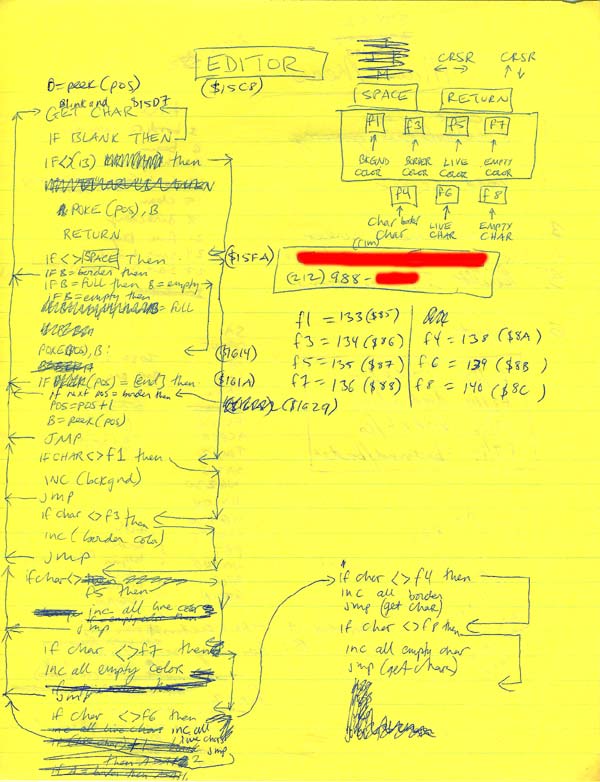 EDITOR
($15C8)
B=peek(pos)
Blink and $15D7
GET CHAR
IF BLANK THEN
IF<>(13) then
POKE (pos), B
RETURN
if <> SPACE Then ($15FA)
IF B=border then
IF B=full then B=empty
IF B=empty then
B=full
POKE(pos), B: ($1614)
IF (pos) = [end] then ($161A)
if next pos=border then ($1629)
POS=POS+1
B=peek(pos)
JMP
IF CHAR<>f1 then
INC (bckgnd)
jmp
if char <>f3 then
inc (border color)
jmp
if char<>
f5 then
inc all live color
jmp
if char <>f7 then
inc all empty color
jmp
if char <>f6 then
inc all
live chars
jmp
CRSR CRSR
SPACE RETURN
f1 f3 f5 f7
BKGND COLOR
BORDER COLOR
LIVE COLOR
EMPTY COLOR
f4 f6 f8
char border char.
(rim)
LIVE CHAR
EMPTY CHAR
(212) 988-
f1 = 133 ($85)
f3 = 134 ($86) f4 = 138 ($8A)
f5 = 135 ($87) f6 = 139 ($8B)
f7 = 136 ($88) f8 = 140 ($8C)
if char <>f4 then
inc all border
jmp (get char)
if char <>f8 then
inc all empty char
jmp (get char)